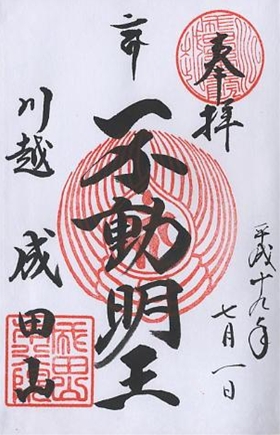 奉拝
平成十九年
七月一日
不動明王
川越 成田山